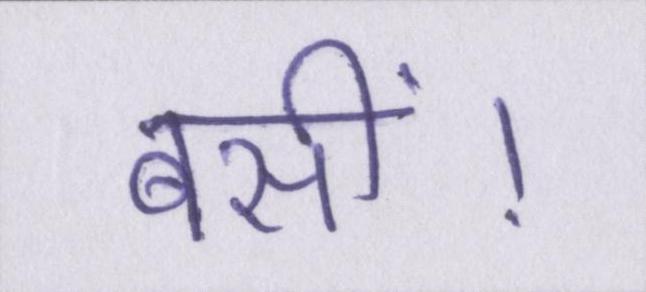 बसीं!